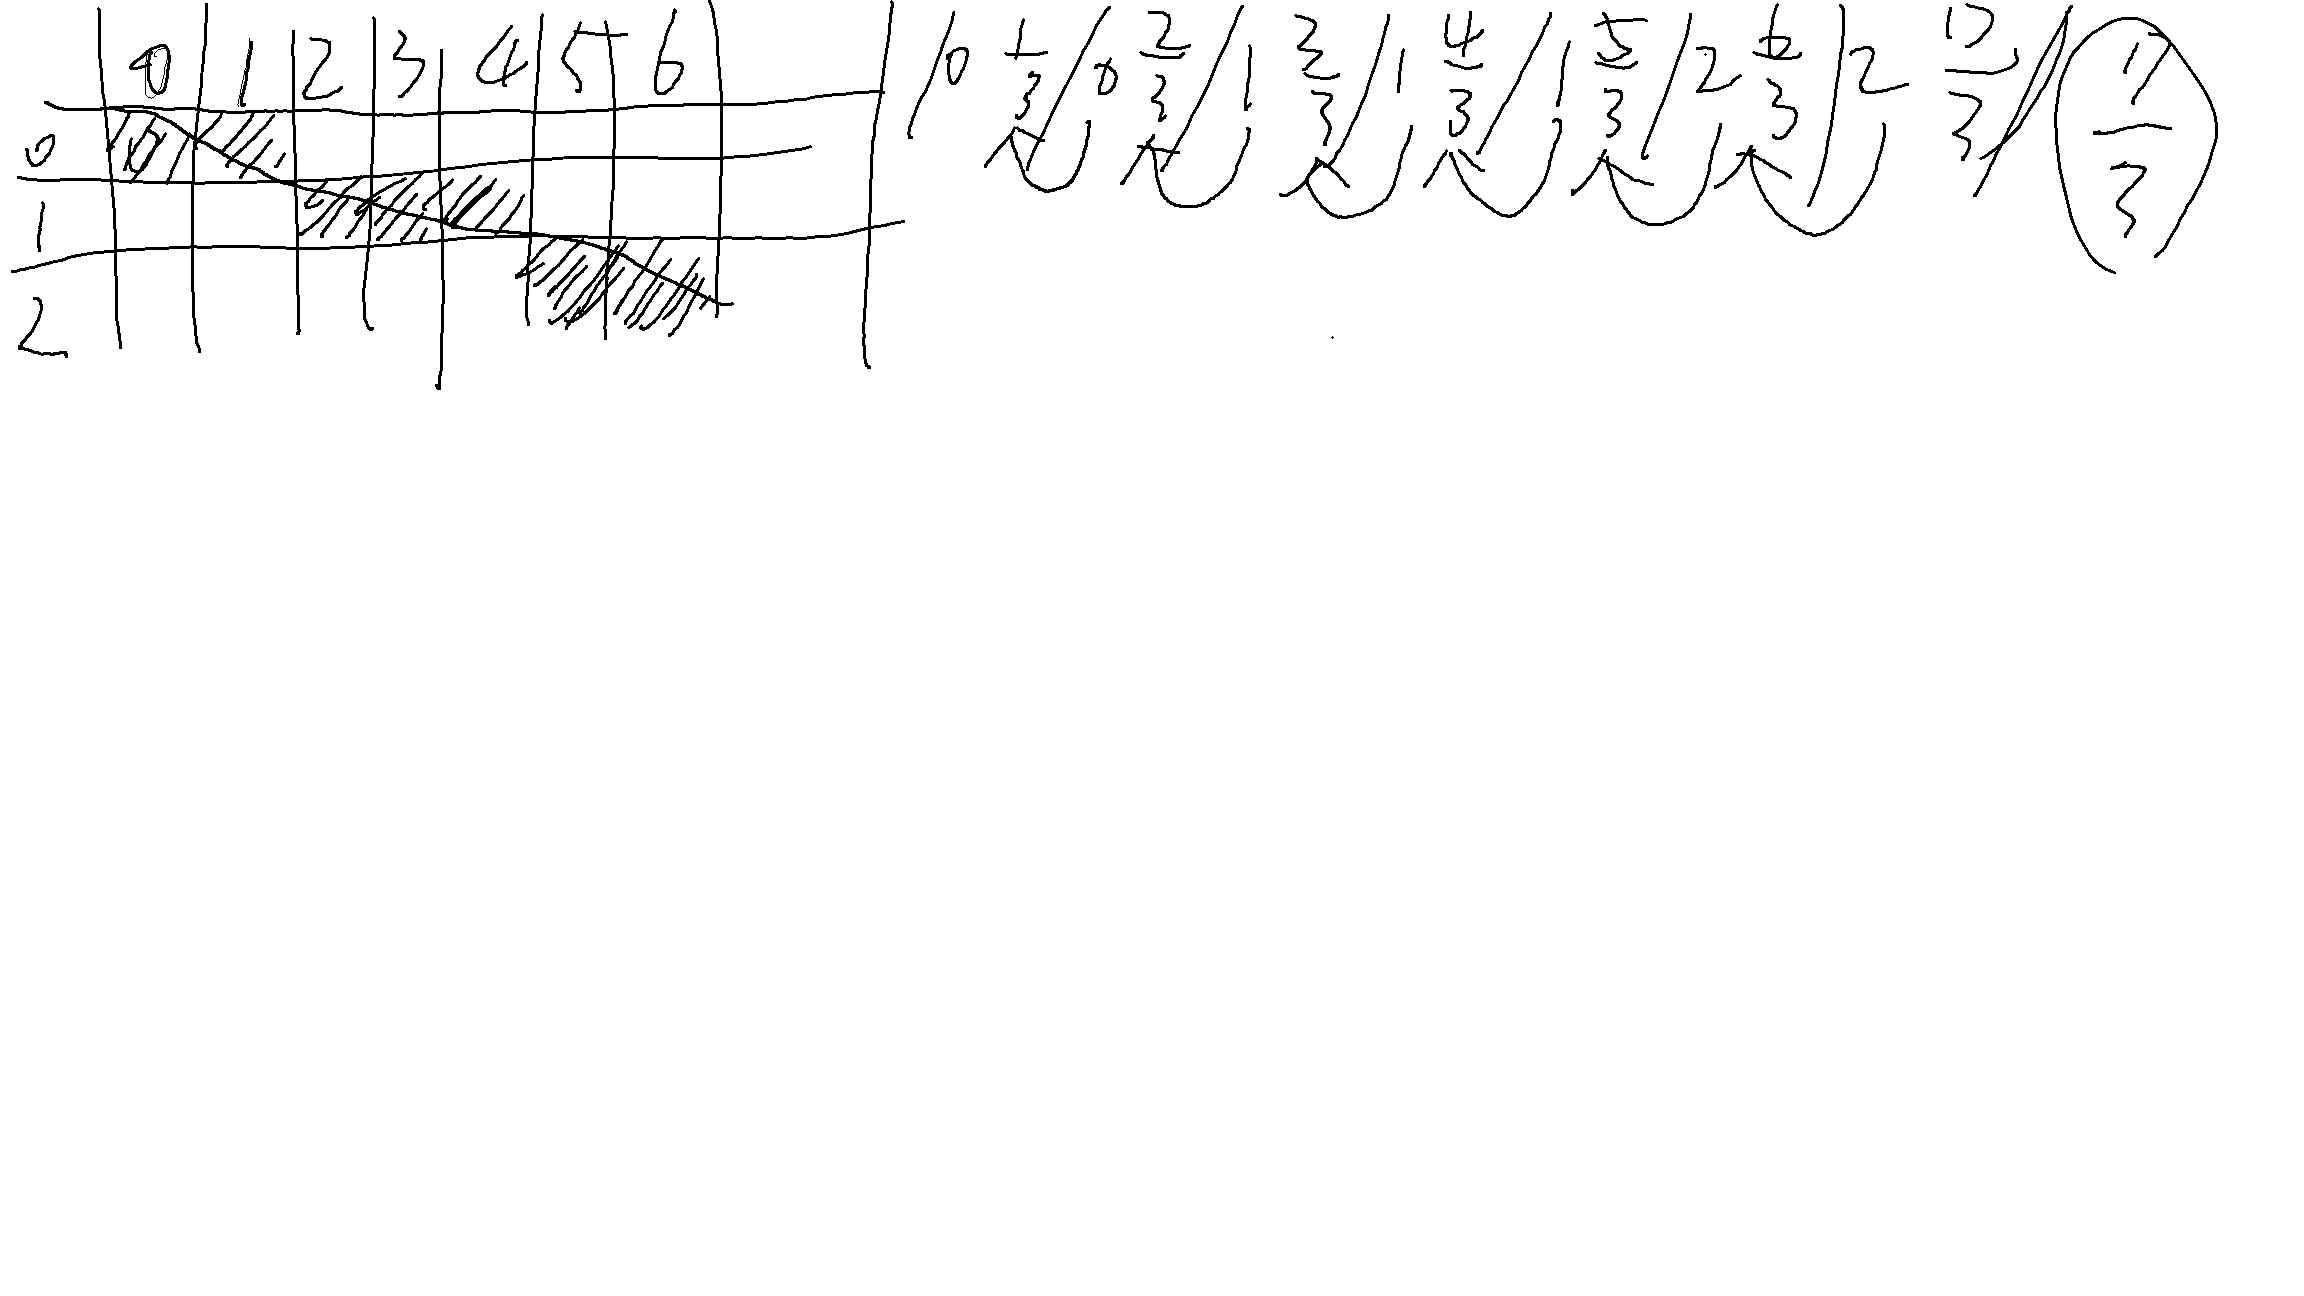 0 1 2 3 4 5 6
0
1
2
0 1/3 / 0 2/3 / 1 3/3 / 1 4/3 / 1 5/3 / 2 6/3 / 2 17/3
17/3